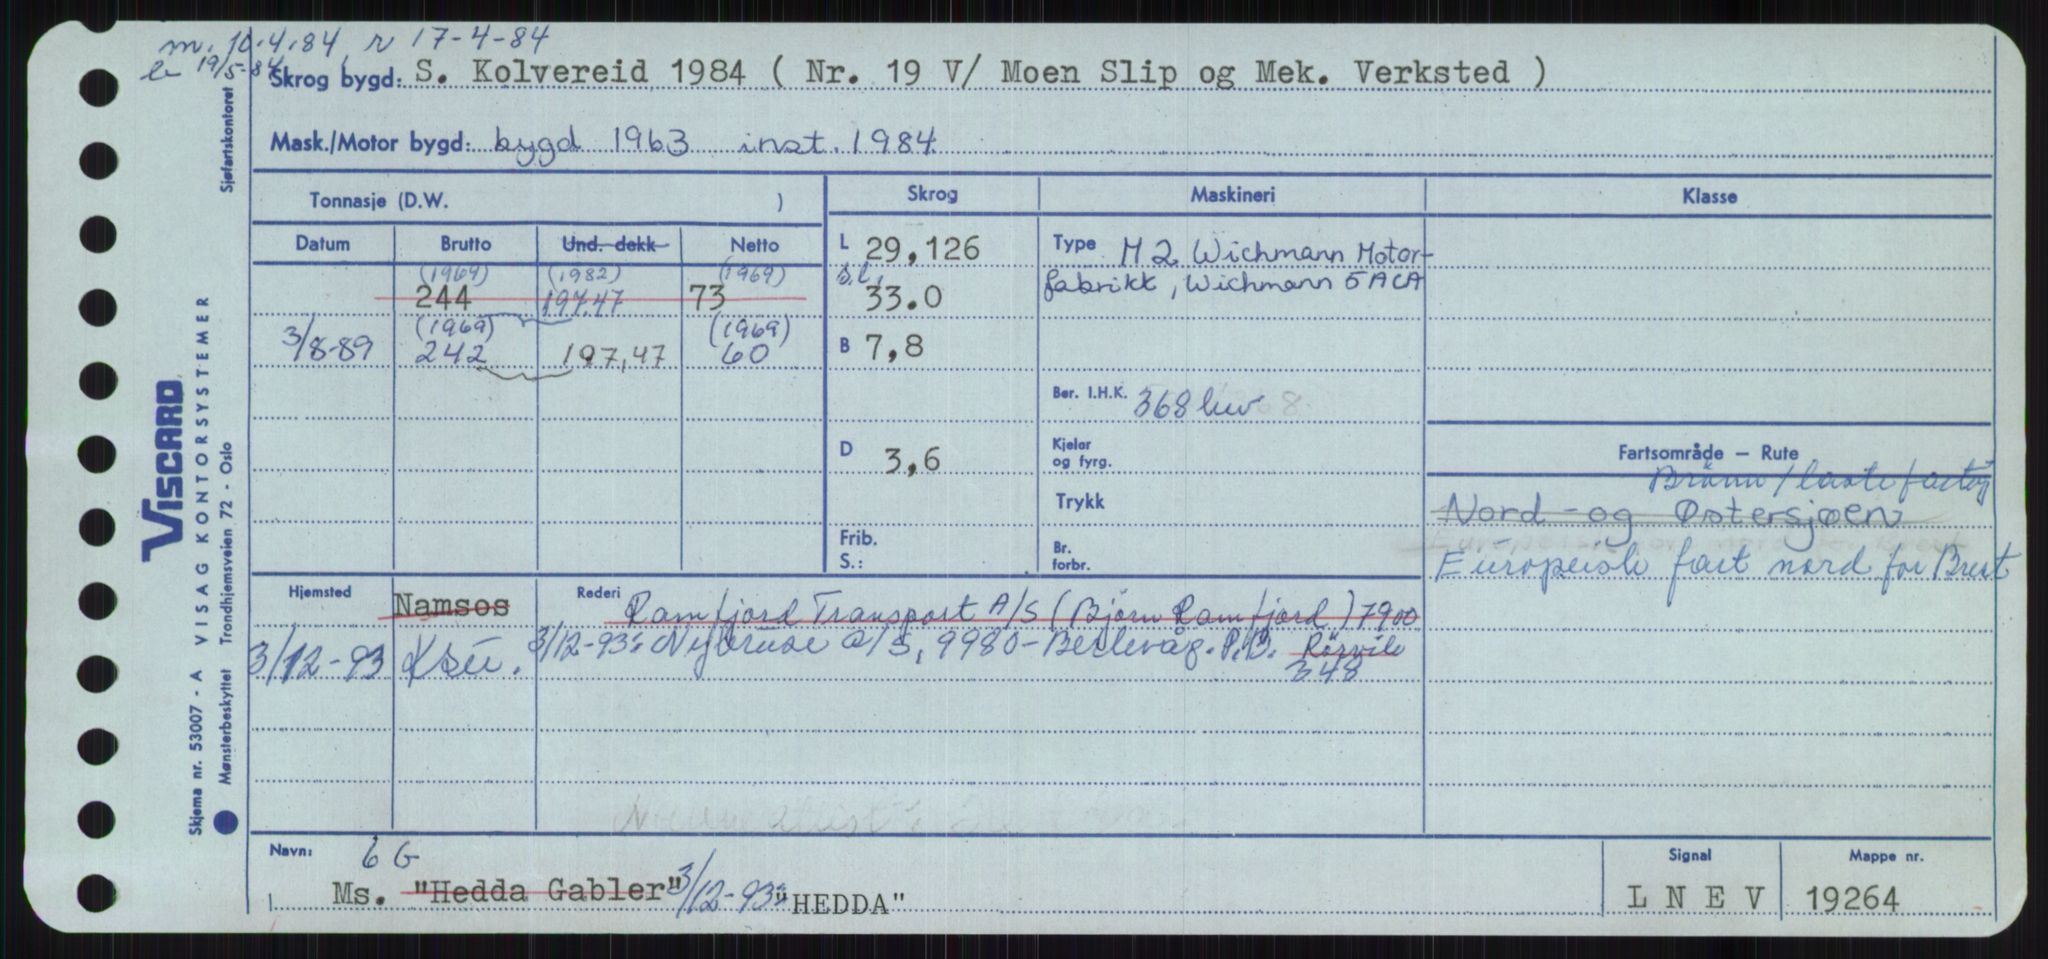 m. 10.4.84, r 17-4-84
19/5-84
Skrog bygd: S. Kolvereid 1984 ( Nr. 19 V/ Moen Slip og Mek. Verksted )
Mask./Motor bygd: bygd 1963 inst. 1984
Tonnasje (D.W. )
Skrog
Maskineri
Klasse
Datum Brutto Und. dekk Netto
(1969) (1982) (1969)
244 197.47 73
(1969) (1969)
3/8-89 242 197,47 60
L 29,126
s.l. 33.0
B 7,8
D 3,6
Frib.
S.:
Type M 2 Wichmann Motor-
fabrikk, Wichmann 5 ACA
Ber. I.H.K. 368 kw
Kjelar
og fyrg.
Trykk
Br.
forbr.
Fartsområde — Rute
Brønn/lastefartøy
Nord- og Østersjøen
Europeisk fart nord for Brest
Hjemsted Namsos Rederi Ramfjord Transport A/S (Bjørn Ramfjord) 7900
Rørvik
3/12-93 Ksu. 3/12-93: a/s, 9980-Berlevåg. P.B.
348
Navn: 6 G
Ms. "Hedda Gabler" 3/12-93: "HEDDA"
Signal
L N E V
Mappe nr.
19264
VISCARD
VISAG KONTORSYSTEMER
Skjema nr. 53007 - A
Mønsterbeskyttet Trondhjemsveien 72 - Oslo
Sjøfartskontoret